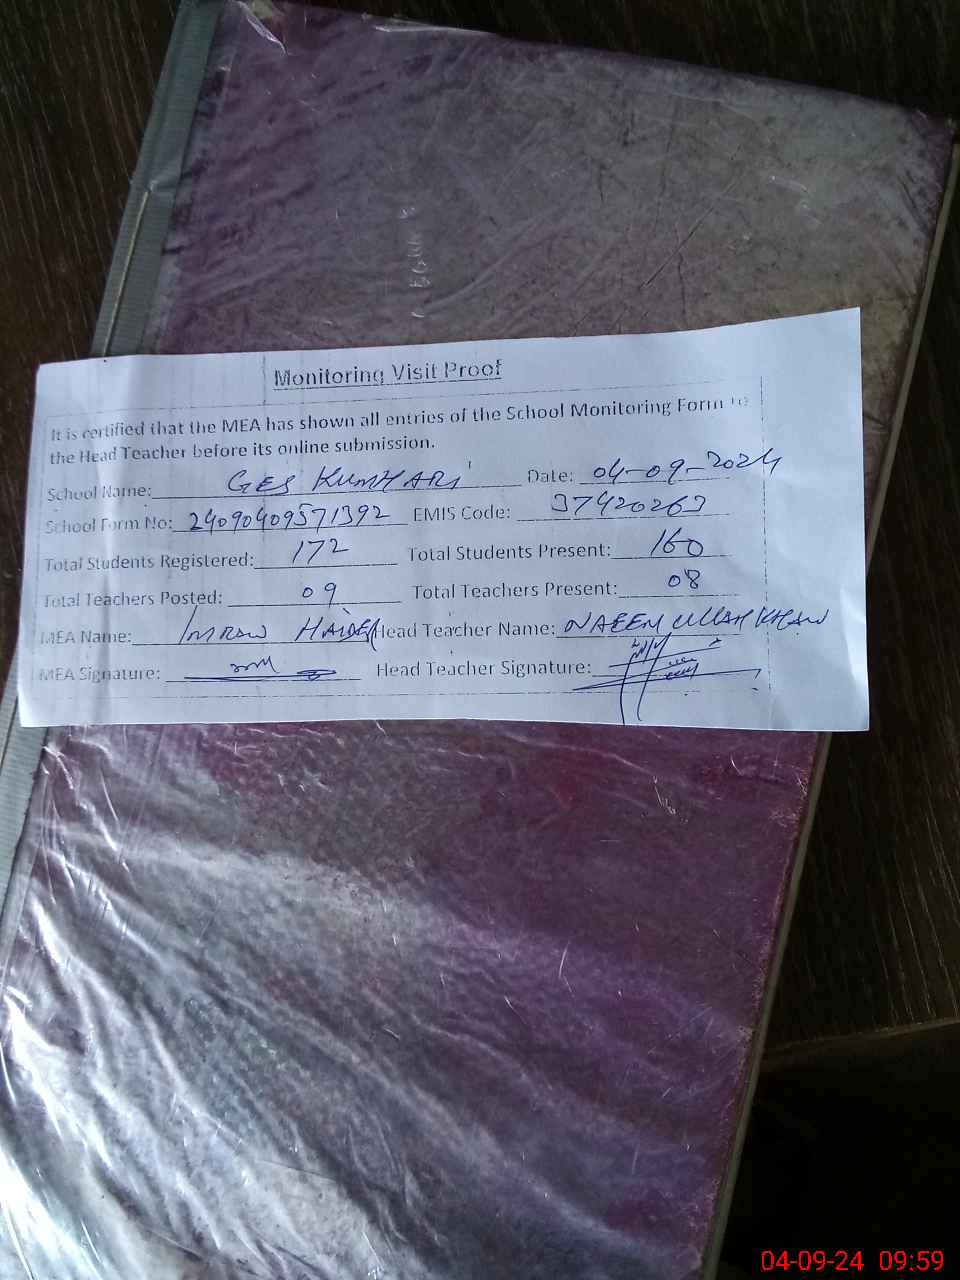 Monitoring Visit Proof
It is certified that the MEA has shown all entries of the School Monitoring Form to
the Head Teacher before its online submission.
School Name: GES KUMHARI Date: 04-09-2024
School Form No: 24090409571392 EMIS Code: 37420263
Total Students Registered: 172 Total Students Present: 160
Total Teachers Posted: 09 Total Teachers Present: 08
MEA Name: IMRAN HAIDER Head Teacher Name: NAEEM ULLAH KHAN
MEA Signature: Head Teacher Signature:
04-09-24 09:59